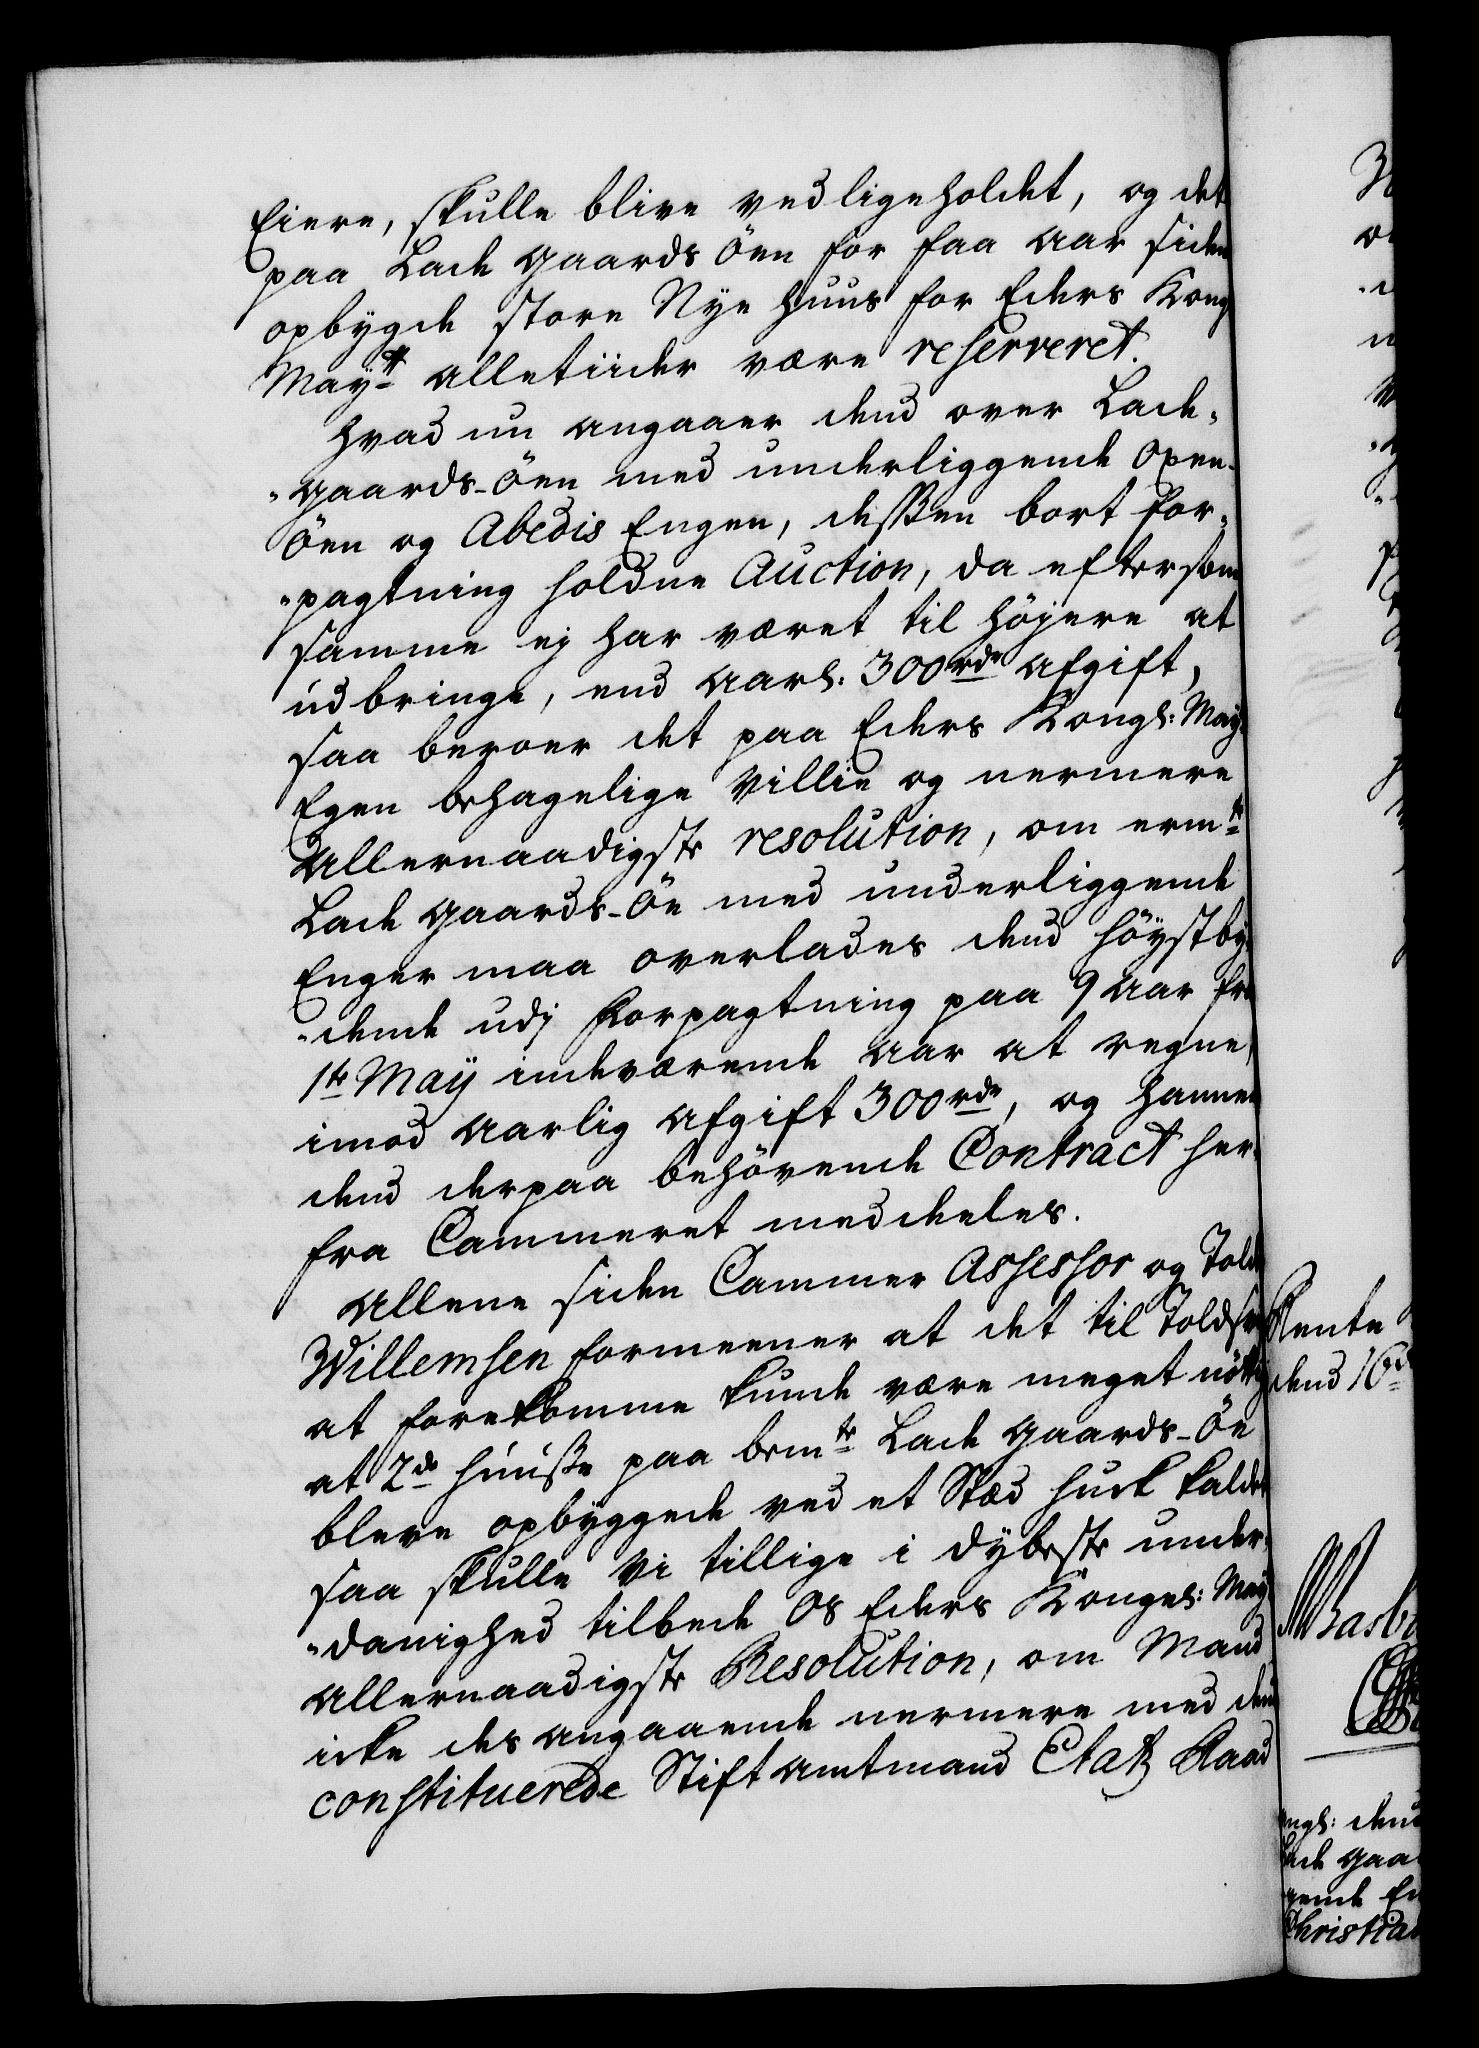 Eiere, skulle blive vedligeholdet, og det
paa Lade Gaards Öen for faa Aar siden
opbÿgde store Nÿe Huus for Eders Kong
Maÿt alletiider være reserveret.
Hvad nu angaaer dend over Lade-
"Gaards-Öen med underliggende Oxen-
Öen og Abedis Engen, dessen bort for-
"pagtning holdne Auction, da eftersom
samme ej har været til höjere at
udbringe, end Aarl: 300 rdr Afgift,
saa beroer det paa Eders Kongl: Maÿ
Egen behagelige Villie og nermere
Allernaadigste resolution, om erm.te
Lade Gaards-Öe med underliggende
Enger maa overlades dend höÿstbÿ-
"dende udj Forpagtning paa 9 Aar fra
1te Maÿ indeværende Aar at regne,
imod Aarlig Afgift 300 rdr, og hannem
dend derpaa behövende Contract her-
fra Cammeret meddeles.
Allene siden Cammer Assessor og Told
Willemsen formeener at det til Toldsv
at forekomme kunde være meget nöttig
at 2de huuse paa bem.te Lade Gaards-Öe
bleve opbÿggede ved et Stæd Huck kaldet
saa skulle Vi tillige i dÿbeste under-
"danighed tilbede Os Eders Kongel: Maÿ
Allernaadigste Resolution, om Mand
icke des angaaende nermere med dend
constituerede Stift Amtmand Etatz Raad
Rente
dend 16d
ngl: dend
Lade Gaa
gende En
Christian